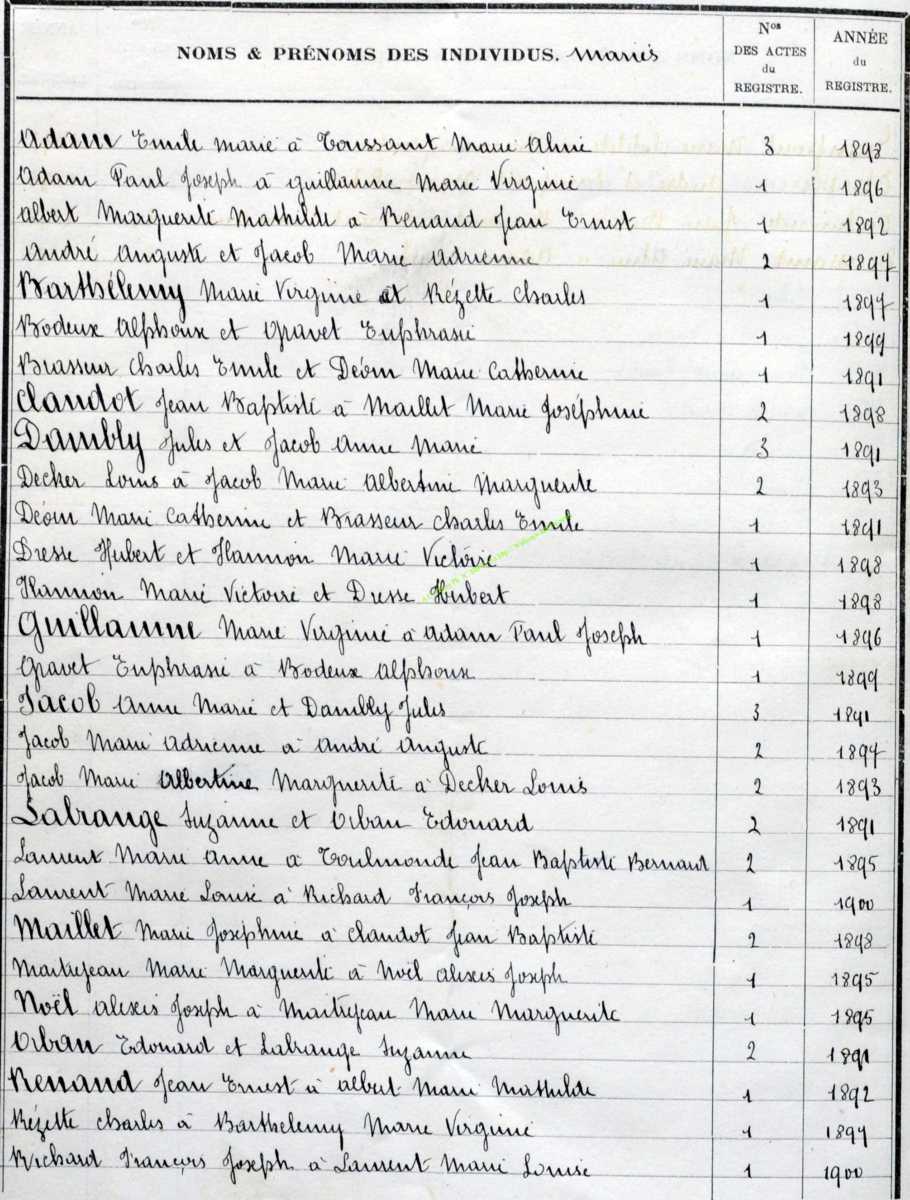 NOMS & PRÉNOMS DES INDIVIDUS. Mariés
Nos DES ACTES du REGISTRE.
ANNÉE du REGISTRE.
Adam Emile marié à Toussaint Marie Aline 3 1898
Adam Paul Joseph à Guillaume Marie Virginie 1 1896
Albert Marguerite Mathilde à Renaud Jean Ernest 1 1892
André Auguste et Jacob Marie Adrienne 2 1897
Barthélemy Marie Virginie et Rézette Charles 1 1897
Bodeux Alphonse et Gravet Euphrasie 1 1899
Brasseur Charles Emile et Déom Marie Catherine 1 1891
Claudot Jean Baptiste à Maillet Marie Joséphine 2 1898
Dambly Jules et Jacob Anne Marie 3 1891
Decker Louis à Jacob Marie Albertine Marguerite 2 1893
Déom Marie Catherine et Brasseur Charles Emile 1 1891
Dresse Hubert et Hannion Marie Victoire 1 1898
Hannion Marie Victoire et Dresse Hubert 1 1898
Guillaume Marie Virginie à Adam Paul Joseph 1 1896
Gravet Euphrasie à Bodeux Alphonse 1 1899
Jacob Anne Marie et Dambly Jules 3 1891
Jacob Marie Adrienne à André Auguste 2 1897
Jacob Marie Albertine Marguerite à Decker Louis 2 1893
Labrange Suzanne et Orban Edouard 2 1891
Laurent Marie Anne à Toulmonde Jean Baptiste Bernard 2 1895
Laurent Marie Louise à Richard François Joseph 1 1900
Maillet Marie Josephine à Claudot Jean Baptiste 2 1898
Maitrejean Marie Marguerite à Noël Alexis Joseph 1 1895
Noël Alexis Joseph à Maitrejean Marie Marguerite 1 1895
Orban Edouard et Labrange Suzanne 2 1891
Renaud Jean Ernest à Albert Marie Mathilde 1 1892
Rézette Charles à Barthelemy Marie Virginie 1 1897
Richard François Joseph à Laurent Marie Louise 1 1900